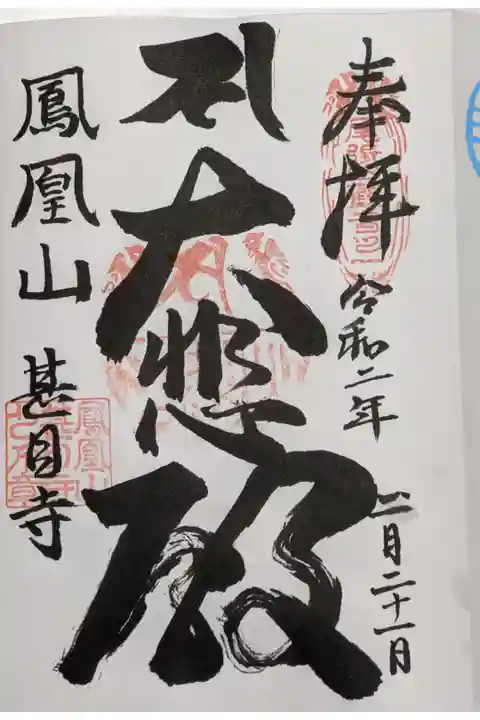 奉拝
令和二年
二月二十一日
大悲殿
鳳凰山
甚目寺
鳳凰山